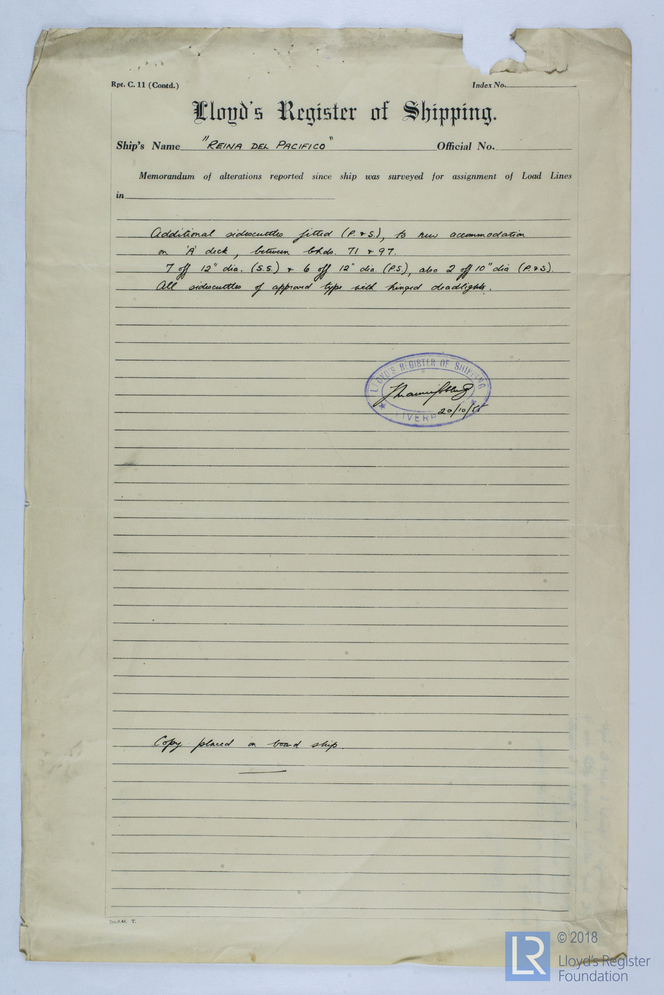 Rpt. C. 11 (Contd.)
Index No.
Lloyd's Register of Shipping.
Ship's Name "REINA DEL PACIFICO" Official No.
Memorandum of alterations reported since ship was surveyed for assignment of Load Lines
in
Additional sidescuttles fitted (P. & S.), to new accommodation
on 'A' deck, between bhds. 71 & 97.
7 off 12" dia. (S.S.) & 6 off 12" dia (P.S), also 2 off 10" dia (P.&S)
All sidescuttles of approved type with hinged deadlights.
LLOYD'S REGISTER OF SHIPPING
20/10/
Copy placed on board ship.
LR
© 2018
Lloyd's Register
Foundation